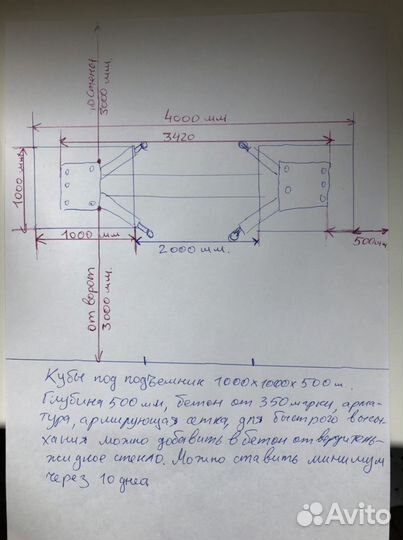 до стены
3000 мм.
4000 мм
3420
1000 мм
1000 мм
2000 мм.
500мм
от ворот
3000 мм.
Кубы под подъемник 1000х1000х500м.
Глубина 500мм, бетон от 350 марки, арма-
тура, армирующая сетка, для быстрого высы-
хания можно добавить в бетон
жидкое стекло. Можно ставить минимум
через 10 дней
Avito